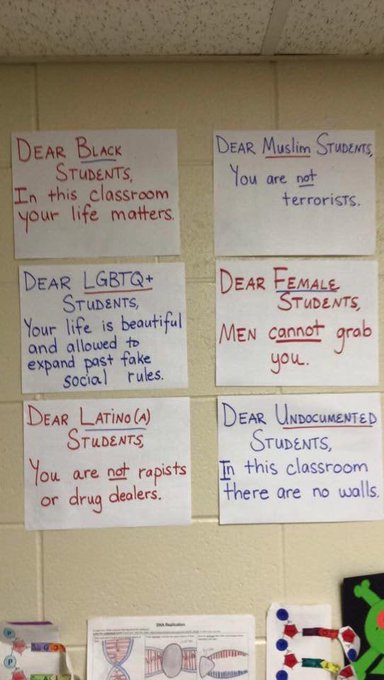 DEAR BLACK
STUDENTS,
In this classroom
your life matters.
DEAR Muslim STUDENTS,
You are not
terrorists.
DEAR LGBTQ+
STUDENTS,
Your life is beautiful
and allowed to
expand past fake
social rules.
DEAR FEMALE
STUDENTS,
MEN cannot grab
you.
DEAR LATINO(A)
STUDENTS
You are not rapists
or drug dealers.
DEAR UNDOCUMENTED
STUDENTS,
In this classroom
there are no walls.
DNA Replication